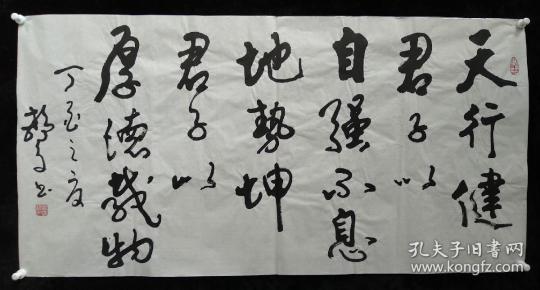 天行健
君子以
自强不息
地势坤
君子以
厚德载物
丁酉之夏
书
孔夫子旧书网
www.kongfz.com